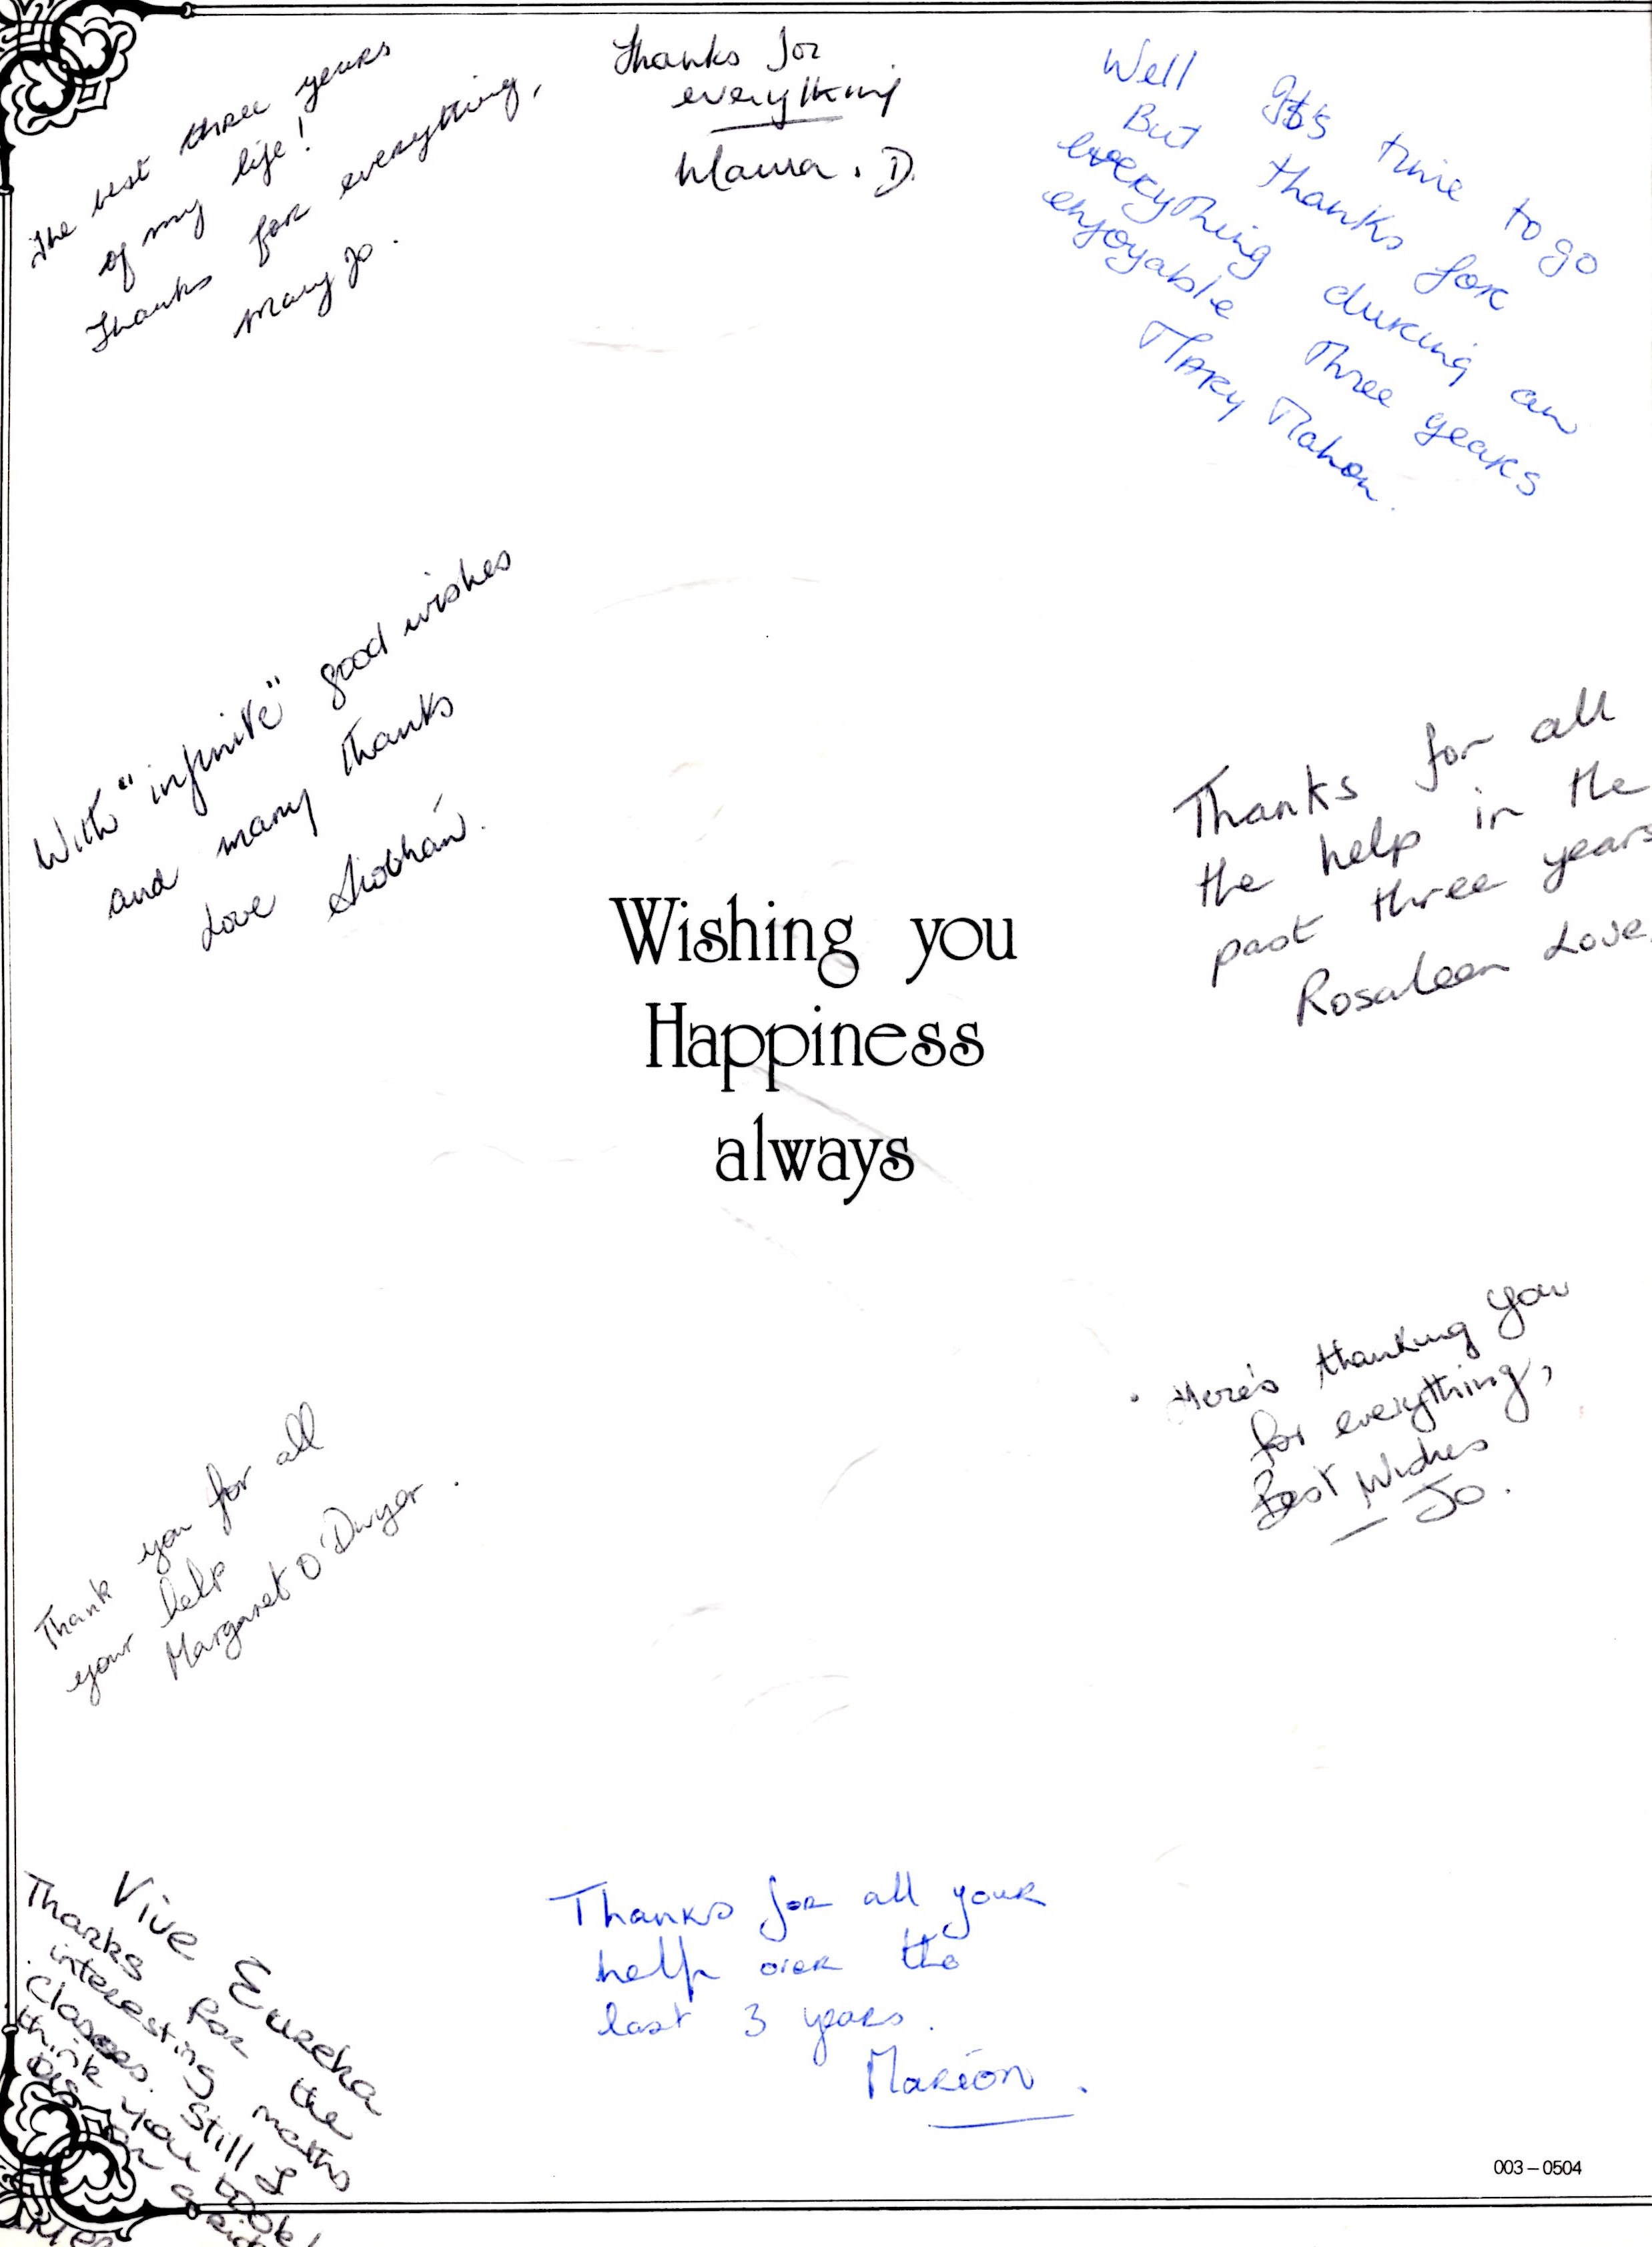 The best three years
of my life!
Thanks for everything,
Mary Jo.
Thanks for
everything
Maura. D.
Well Its time to go
But thanks for
everything during an
enjoyable three years
Mary Mahon.
With "infinite" good wishes
and many thanks
Love Siobhán.
Thanks for all
the help in the
past three years
Rosaleen Love
Wishing you
Happiness
always
Here's thanking you
for everything,
Best Wishes
— Jo.
Thank you for all
your help
Margaret O'Dwyer.
Vive Eureka
Thanks for the
interesting maths
classes. Still I
think you took
Thanks for all your
help over the
last 3 years.
Marion.
003-0504